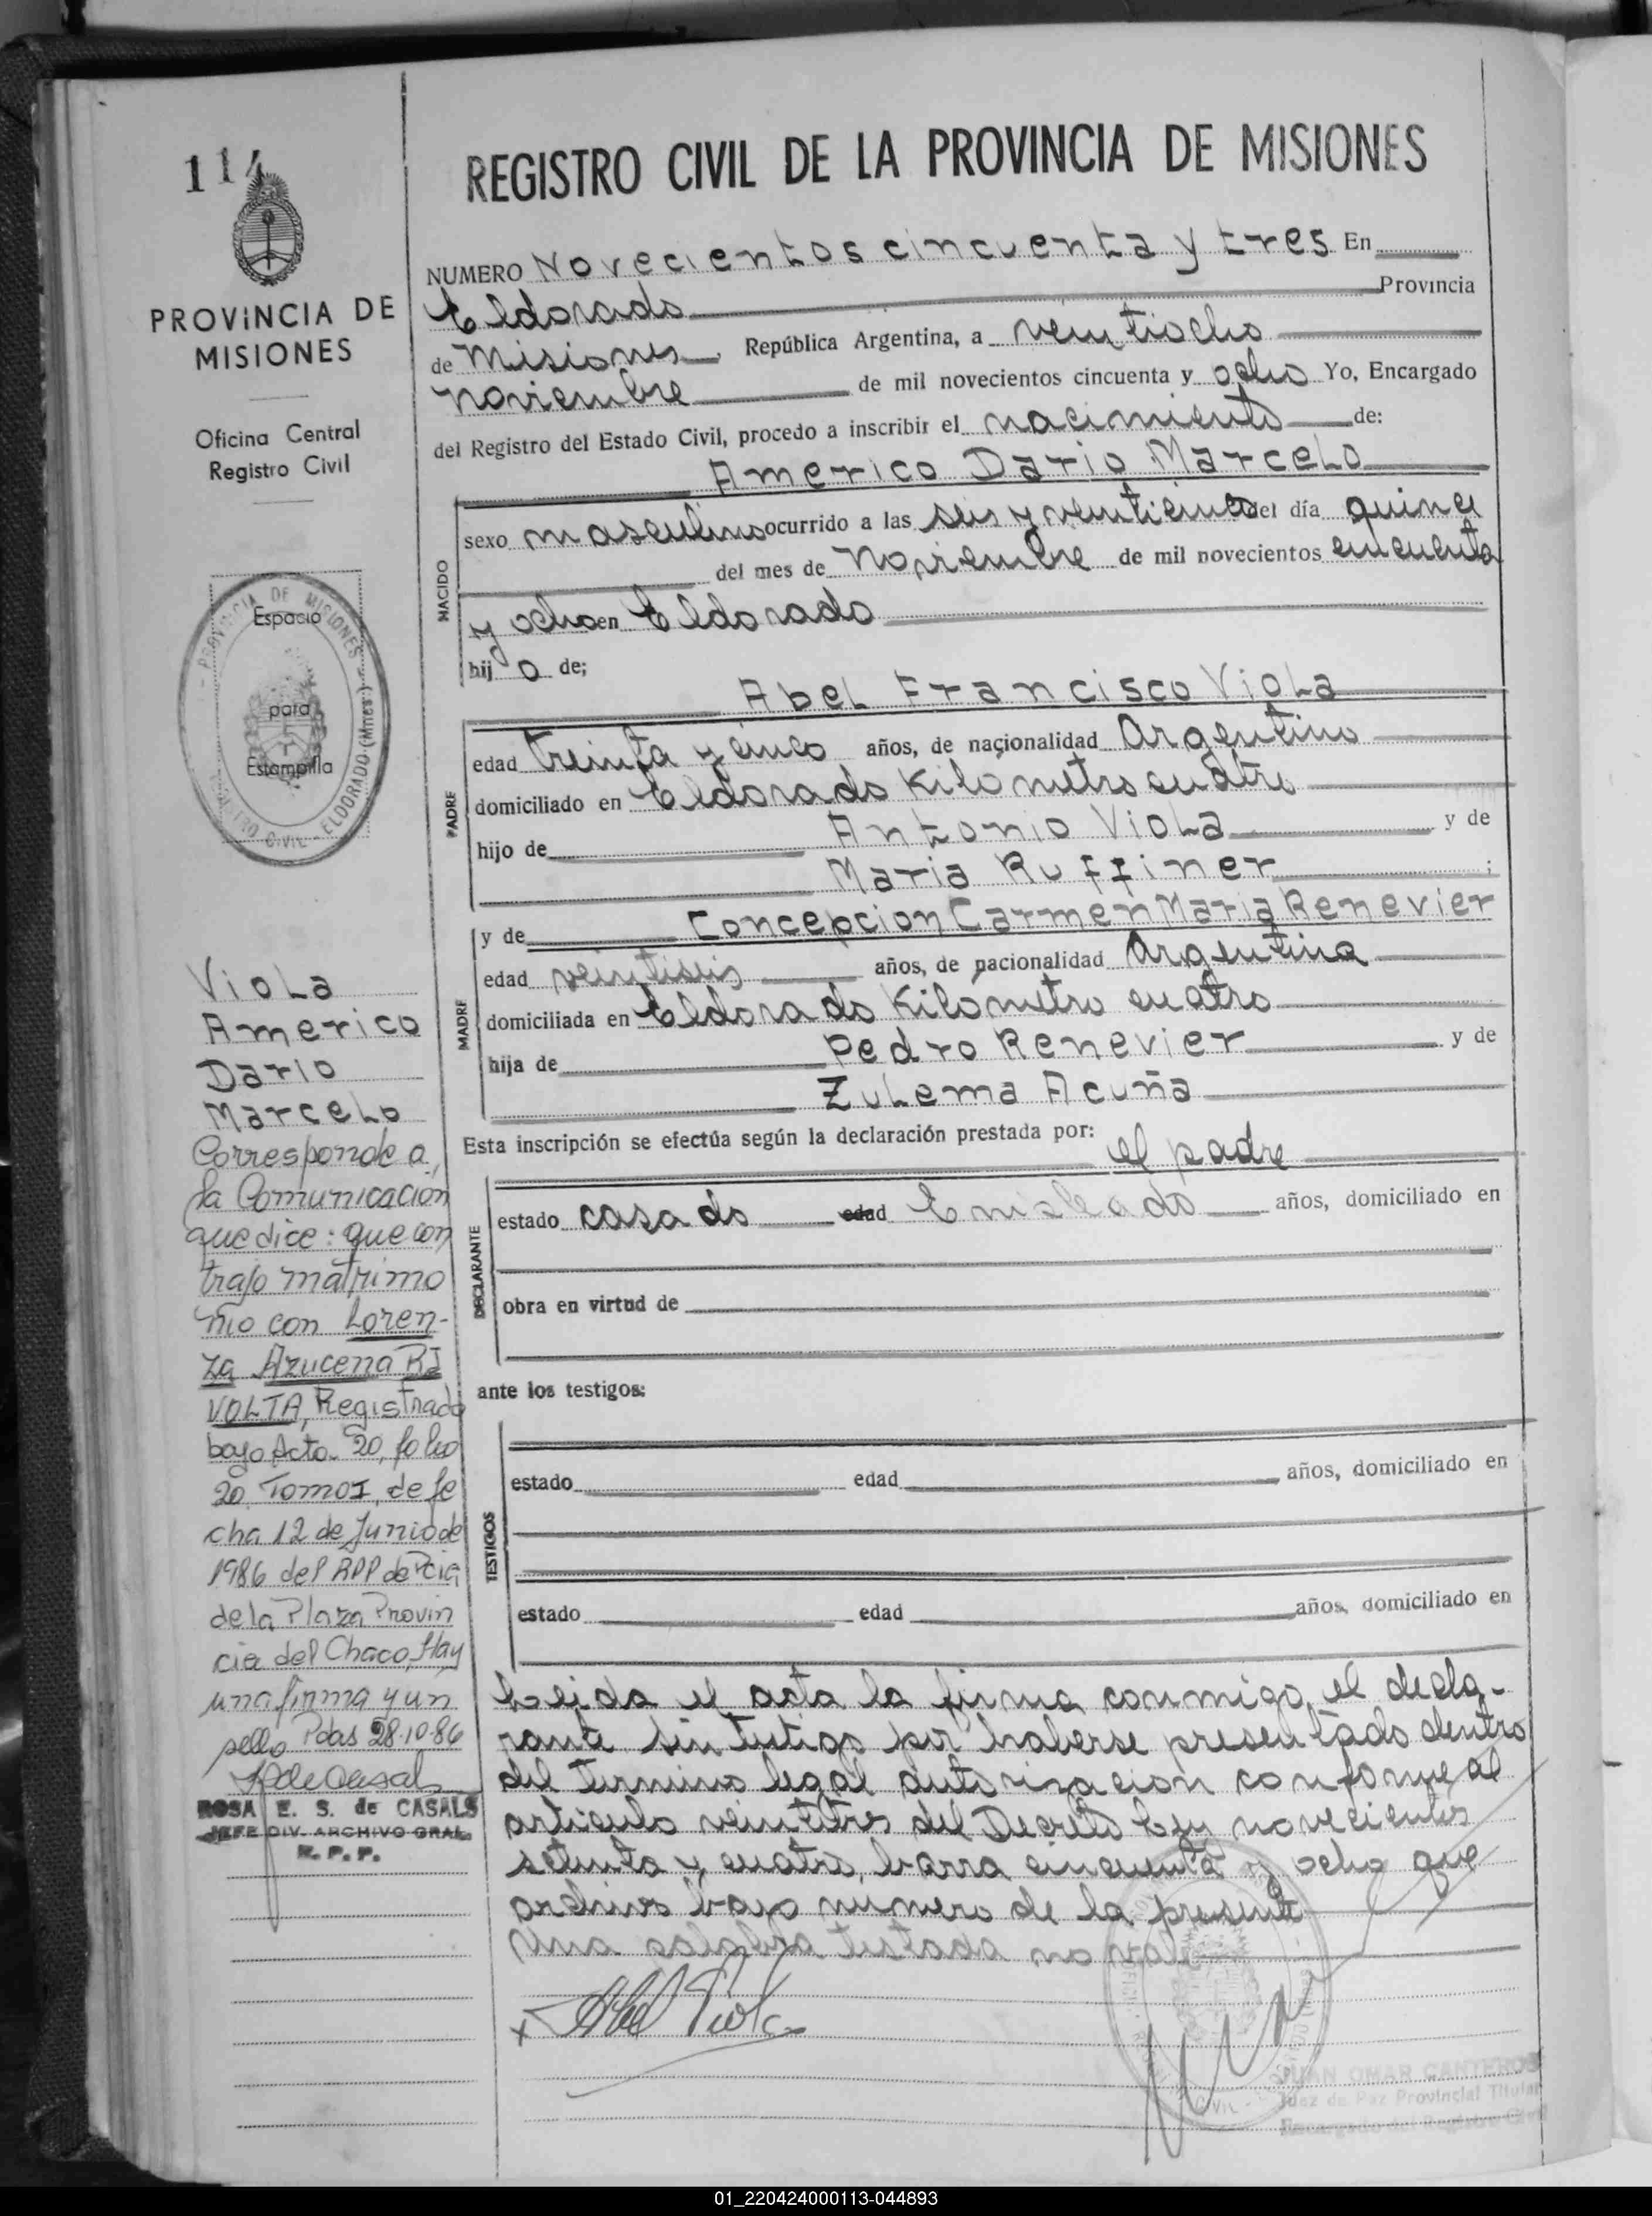 114
PROVINCIA DE
MISIONES
Oficina Central
Registro Civil
REGISTRO CIVIL DE LA PROVINCIA DE MISIONES
NUMERO Novecientos cincuenta y tres En
Eldorado Provincia
de Misiones, República Argentina, a veintiocho
noviembre de mil novecientos cincuenta y ocho Yo, Encargado
del Registro del Estado Civil, procedo a inscribir el nacimiento de:
Americo Dario Marcelo
NACIDO
sexo masculino ocurrido a las seis y veinticinco del día quince
del mes de Noviembre de mil novecientos cincuenta
y ocho en Eldorado
hijo de;
Abel Francisco Viola
PADRE
edad treinta y cinco años, de nacionalidad Argentino
domiciliado en Eldorado Kilometro cuatro
hijo de Antonio Viola y de
Maria Ruffiner ;
y de Concepcion Carmen Maria Renevier
MADRE
edad veintiseis años, de nacionalidad Argentina
domiciliada en Eldorado Kilómetro cuatro
hija de Pedro Renevier y de
Zulema Acuña
Esta inscripción se efectúa según la declaración prestada por: el padre
DECLARANTE
estado casado edad Empleado años, domiciliado en
obra en virtud de
ante los testigos:
TESTIGOS
estado edad años, domiciliado en
estado edad años, domiciliado en
Leida el acta la firma conmigo, el decla-
rante sin testigo por haberse presentado dentro
del termino legal autorizacion conforme al
articulo veintitres del Decreto Ley novecientos
setenta y cuatro, barra cincuenta y ocho que
archivo bajo numero de la presente
Una palabra testada no vale
x Abel Viola
JUAN OMAR CANTEROS
Juez de Paz Provincial Titular
Encargado del Registro Civil
PROVINCIA DE MISIONES
REGISTRO CIVIL - ELDORADO (Mnes.)
Espacio
para
Estampilla
Viola
Americo
Dario
Marcelo
Corresponde a
la Comunicación
que dice: que con
trajo matrimo
nio con Loren-
za Azucena RI
VOLTA, Registrado
bajo Acta 20, folio
20, Tomo I, de fe
cha 12 de Junio de
1986 del RPP de Pcia
de la Plaza Provin
cia del Chaco, Hay
una firma y un
sello Pdas 28-10-86
ROSA E. S. de CASALS
JEFE DIV. ARCHIVO GRAL.
R. P. P.
01_220424000113-044893